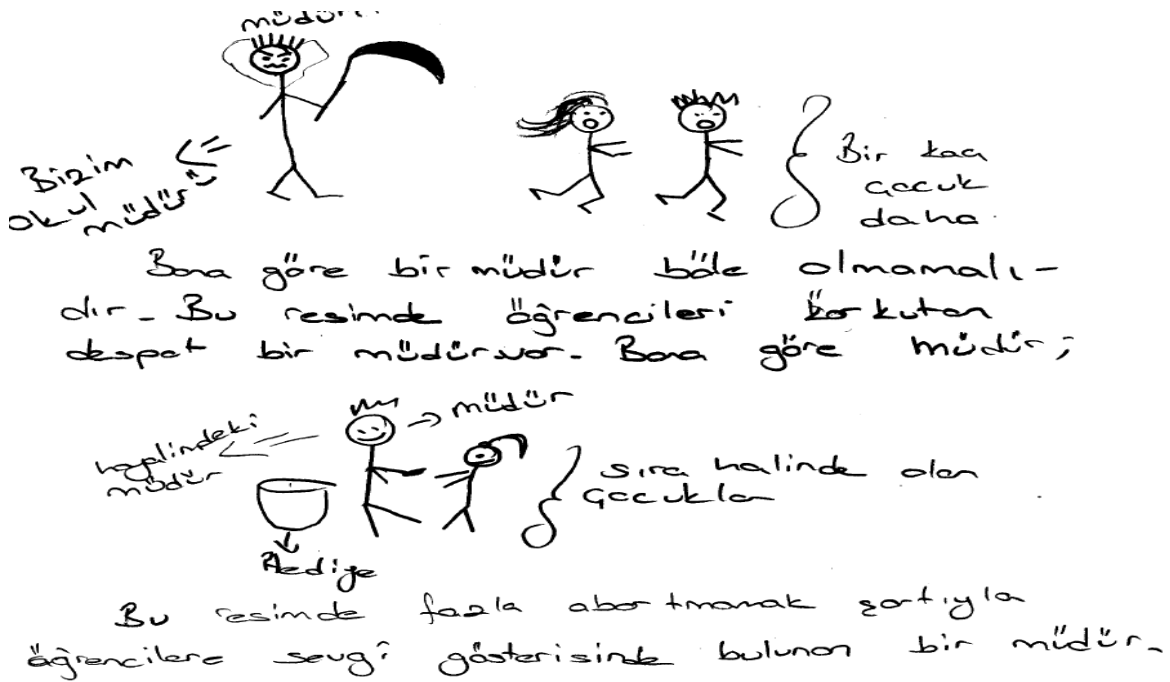 müdür
Bizim
okul
müdürü
Bir kaç
çocuk
daha
Bana göre bir müdür böle olmamalı-
dır. Bu resimde öğrencileri korkutan
despot bir müdür var. Bana göre müdür;
hayalindeki
müdür
müdür
sıra halinde olan
çocuklar
Hediye
Bu resimde fazla abartmamak şartıyla
öğrencilere sevgi gösterisinde bulunan bir müdür.